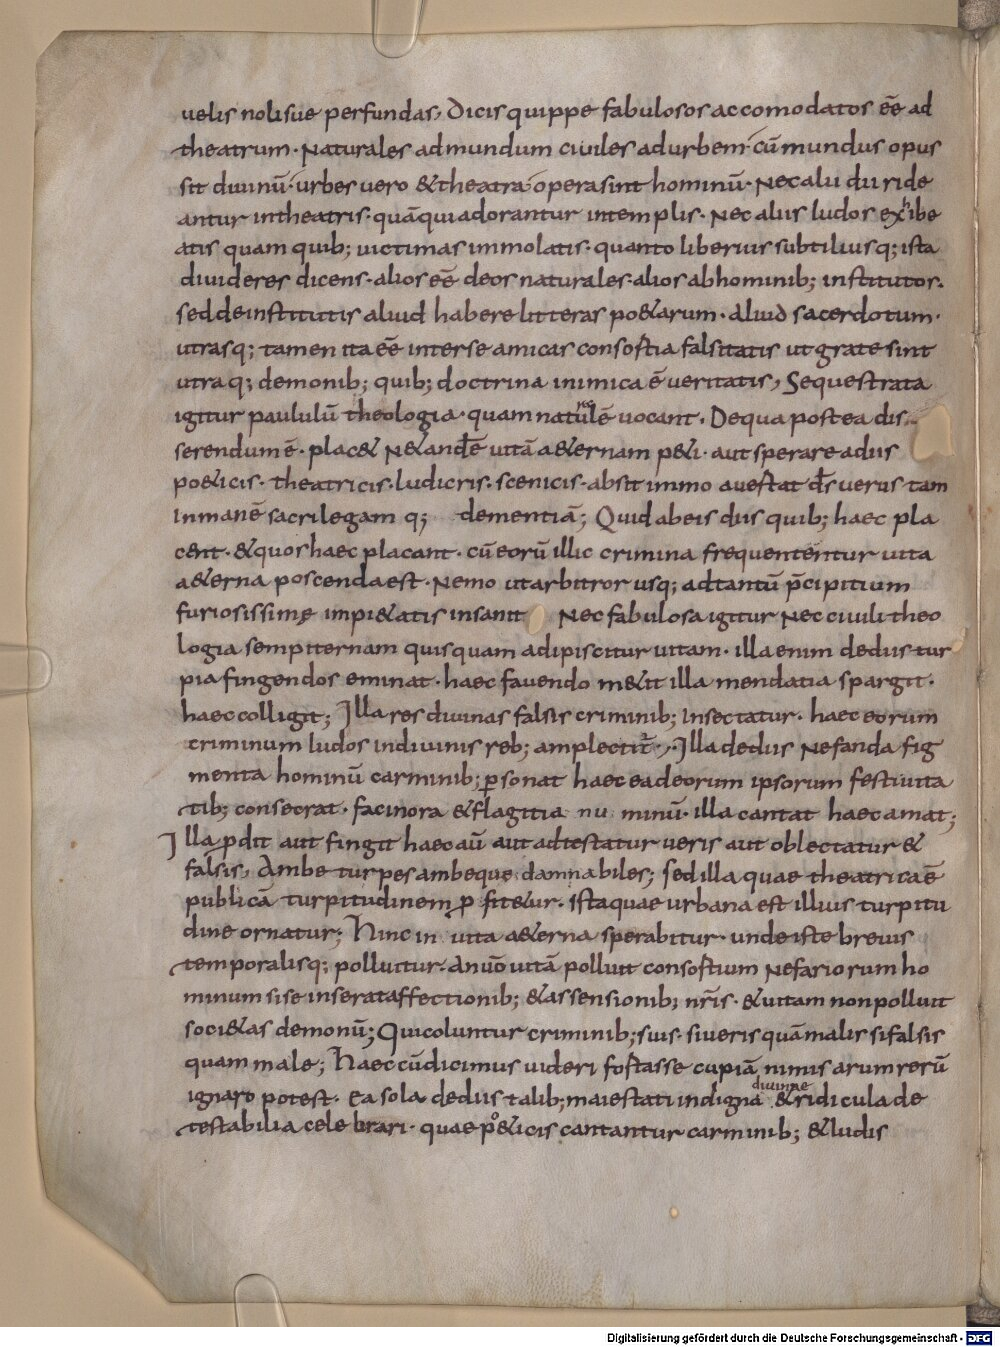 uelis nolisue perfundas, Dicis quippe fabulosos accomodatos eē ad
theatrum · Naturales ad mundum ciuiles ad urbem · cū mundus opus
sit diuinū · urbes uero & theatra opera sint hominū · Nec alii dii ride
antur in theatris · quā qui adorantur in templis · Nec aliis ludos exhibe
atis quam quib; uictimas immolatis · quanto liberius subtiliusq; ista
diuideres dicens · alios eē deos naturales · alios ab hominib; institutos ·
sed de institutis aliud habere litteras po&arum · aliud sacerdotum ·
utrasq; tamen ita eē inter se amicas consortia falsitatis ut grate sint
utraq; demonib; quib; doctrina inimica ē ueritatis, Sequestrata
igitur paululū theologia · quam naturalē uocant · De qua postea dis
serendum ē · plac& N& andē uitā a&ernam p&i · aut sperare a diis
po&icis · theatricis · ludicris · scenicis · absit immo auertat ds̄ uerus tam
Inmanē sacrilegam q; dementiā; Quid ab eis diis quib; haec pla
cent · & quos haec placant · cū eorū illic crimina frequententur uita
a&erna poscenda est · Nemo ut arbitror usq; ad tantū p̄cipitium
furiosissimę impi&atis insanit Nec fabulosa igitur Nec ciuili theo
logia sempiternam quisquam adipiscitur uitam · illa enim de diis tur
pia fingendo seminat · haec fauendo m&it illa mendatia spargit ·
haec colligit; Illa res diuinas falsis criminib; insectatur · haec eorum
criminum ludos in diuinis reb; amplectit̄ ·, · Illa de diis Nefanda fig
menta hominū carminib; psonat haec ea deorum ipsorum festiuita
tib; consecrat · facinora & flagitia nu minū · illa cantat haec amat;
Illa pdit aut fingit haec aū aut adtestatur ueris aut oblectatur &
falsis, Ambe turpes ambeque damnabiles; sed illa quae theatrica ē
publicā turpitudinem p fit&ur · Ista quae urbana est illius turpitu
dine ornatur; Hinc in uita a&erna sperabitur · unde iste breuis
temporalisq; polluitur · An uō uitā polluit consortium Nefariorum ho
minum si se inserat affectionib; & assensionib; nr̄is · & uitam non polluit
soci&as demonū; Qui coluntur criminib; suis · si ueris quā malis si falsis
quam male; Haec cū dicimus uideri fortasse cupiā nimis arum rerū
ignaro potest · Ea sola de diis talib; maiestati indigna diuinae & ridicula de
testabilia celebrari · quae po&icis cantantur carminib; & ludis
Digitalisierung gefördert durch die Deutsche Forschungsgemeinschaft · DFG